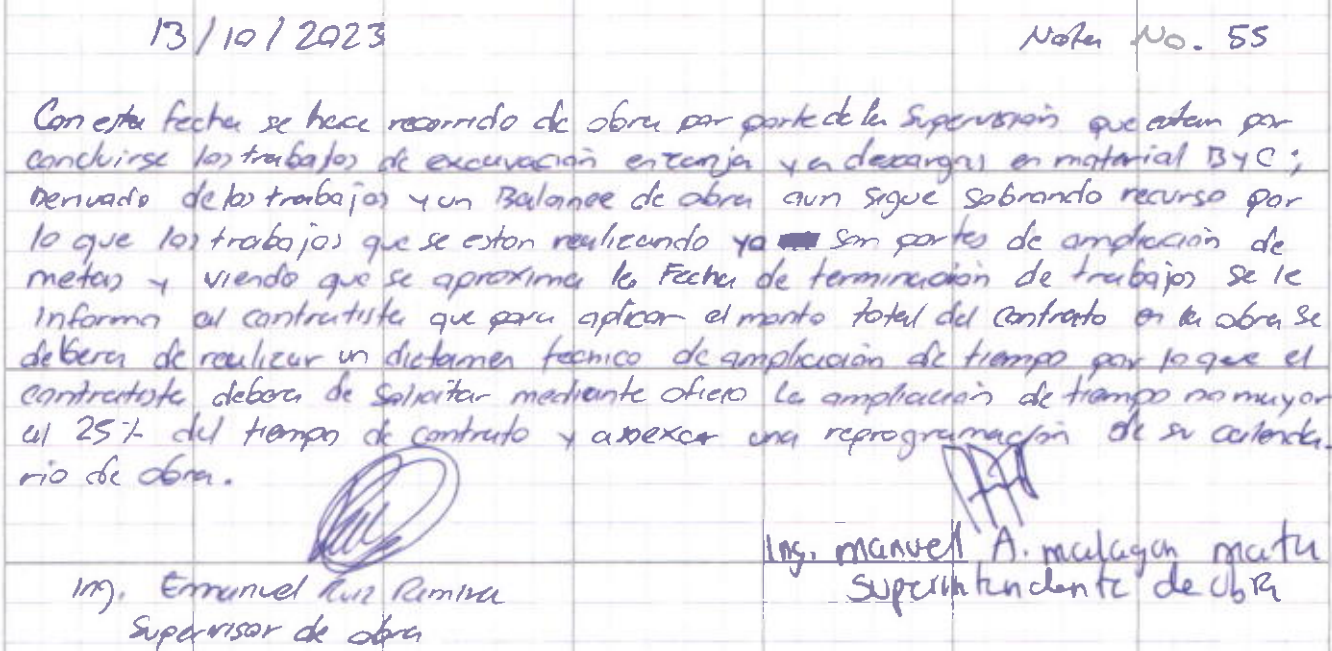 13/10/2023 Nota No. 55
Con esta fecha se hace recorrido de obra por parte de la Supervisión que estan por
concluirse los trabajos de excavación en zanja y en descargas en material B y C;
Derivado de los trabajos y un Balance de obra aun sigue sobrando recurso por
lo que los trabajos que se estan realizando ya son partes de ampliación de
metas y viendo que se aproxima la Fecha de terminación de trabajos se le
Informa al contratista que para aplicar el monto total del contrato en la obra se
debera de realizar un dictamen tecnico de ampliación de tiempo por lo que el
contratista debera de Solicitar mediante oficio la ampliación de tiempo no mayor
al 25% del tiempo de contrato y anexar una reprogramación de su calenda-
rio de obra.
Ing. Manuel A. malagon mata
Superintendente de obra
Ing. Emanuel Ruiz Ramirez
Supervisor de obra